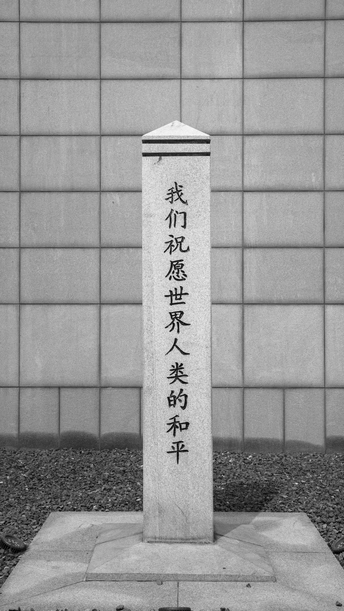 我们祝愿世界人类的和平